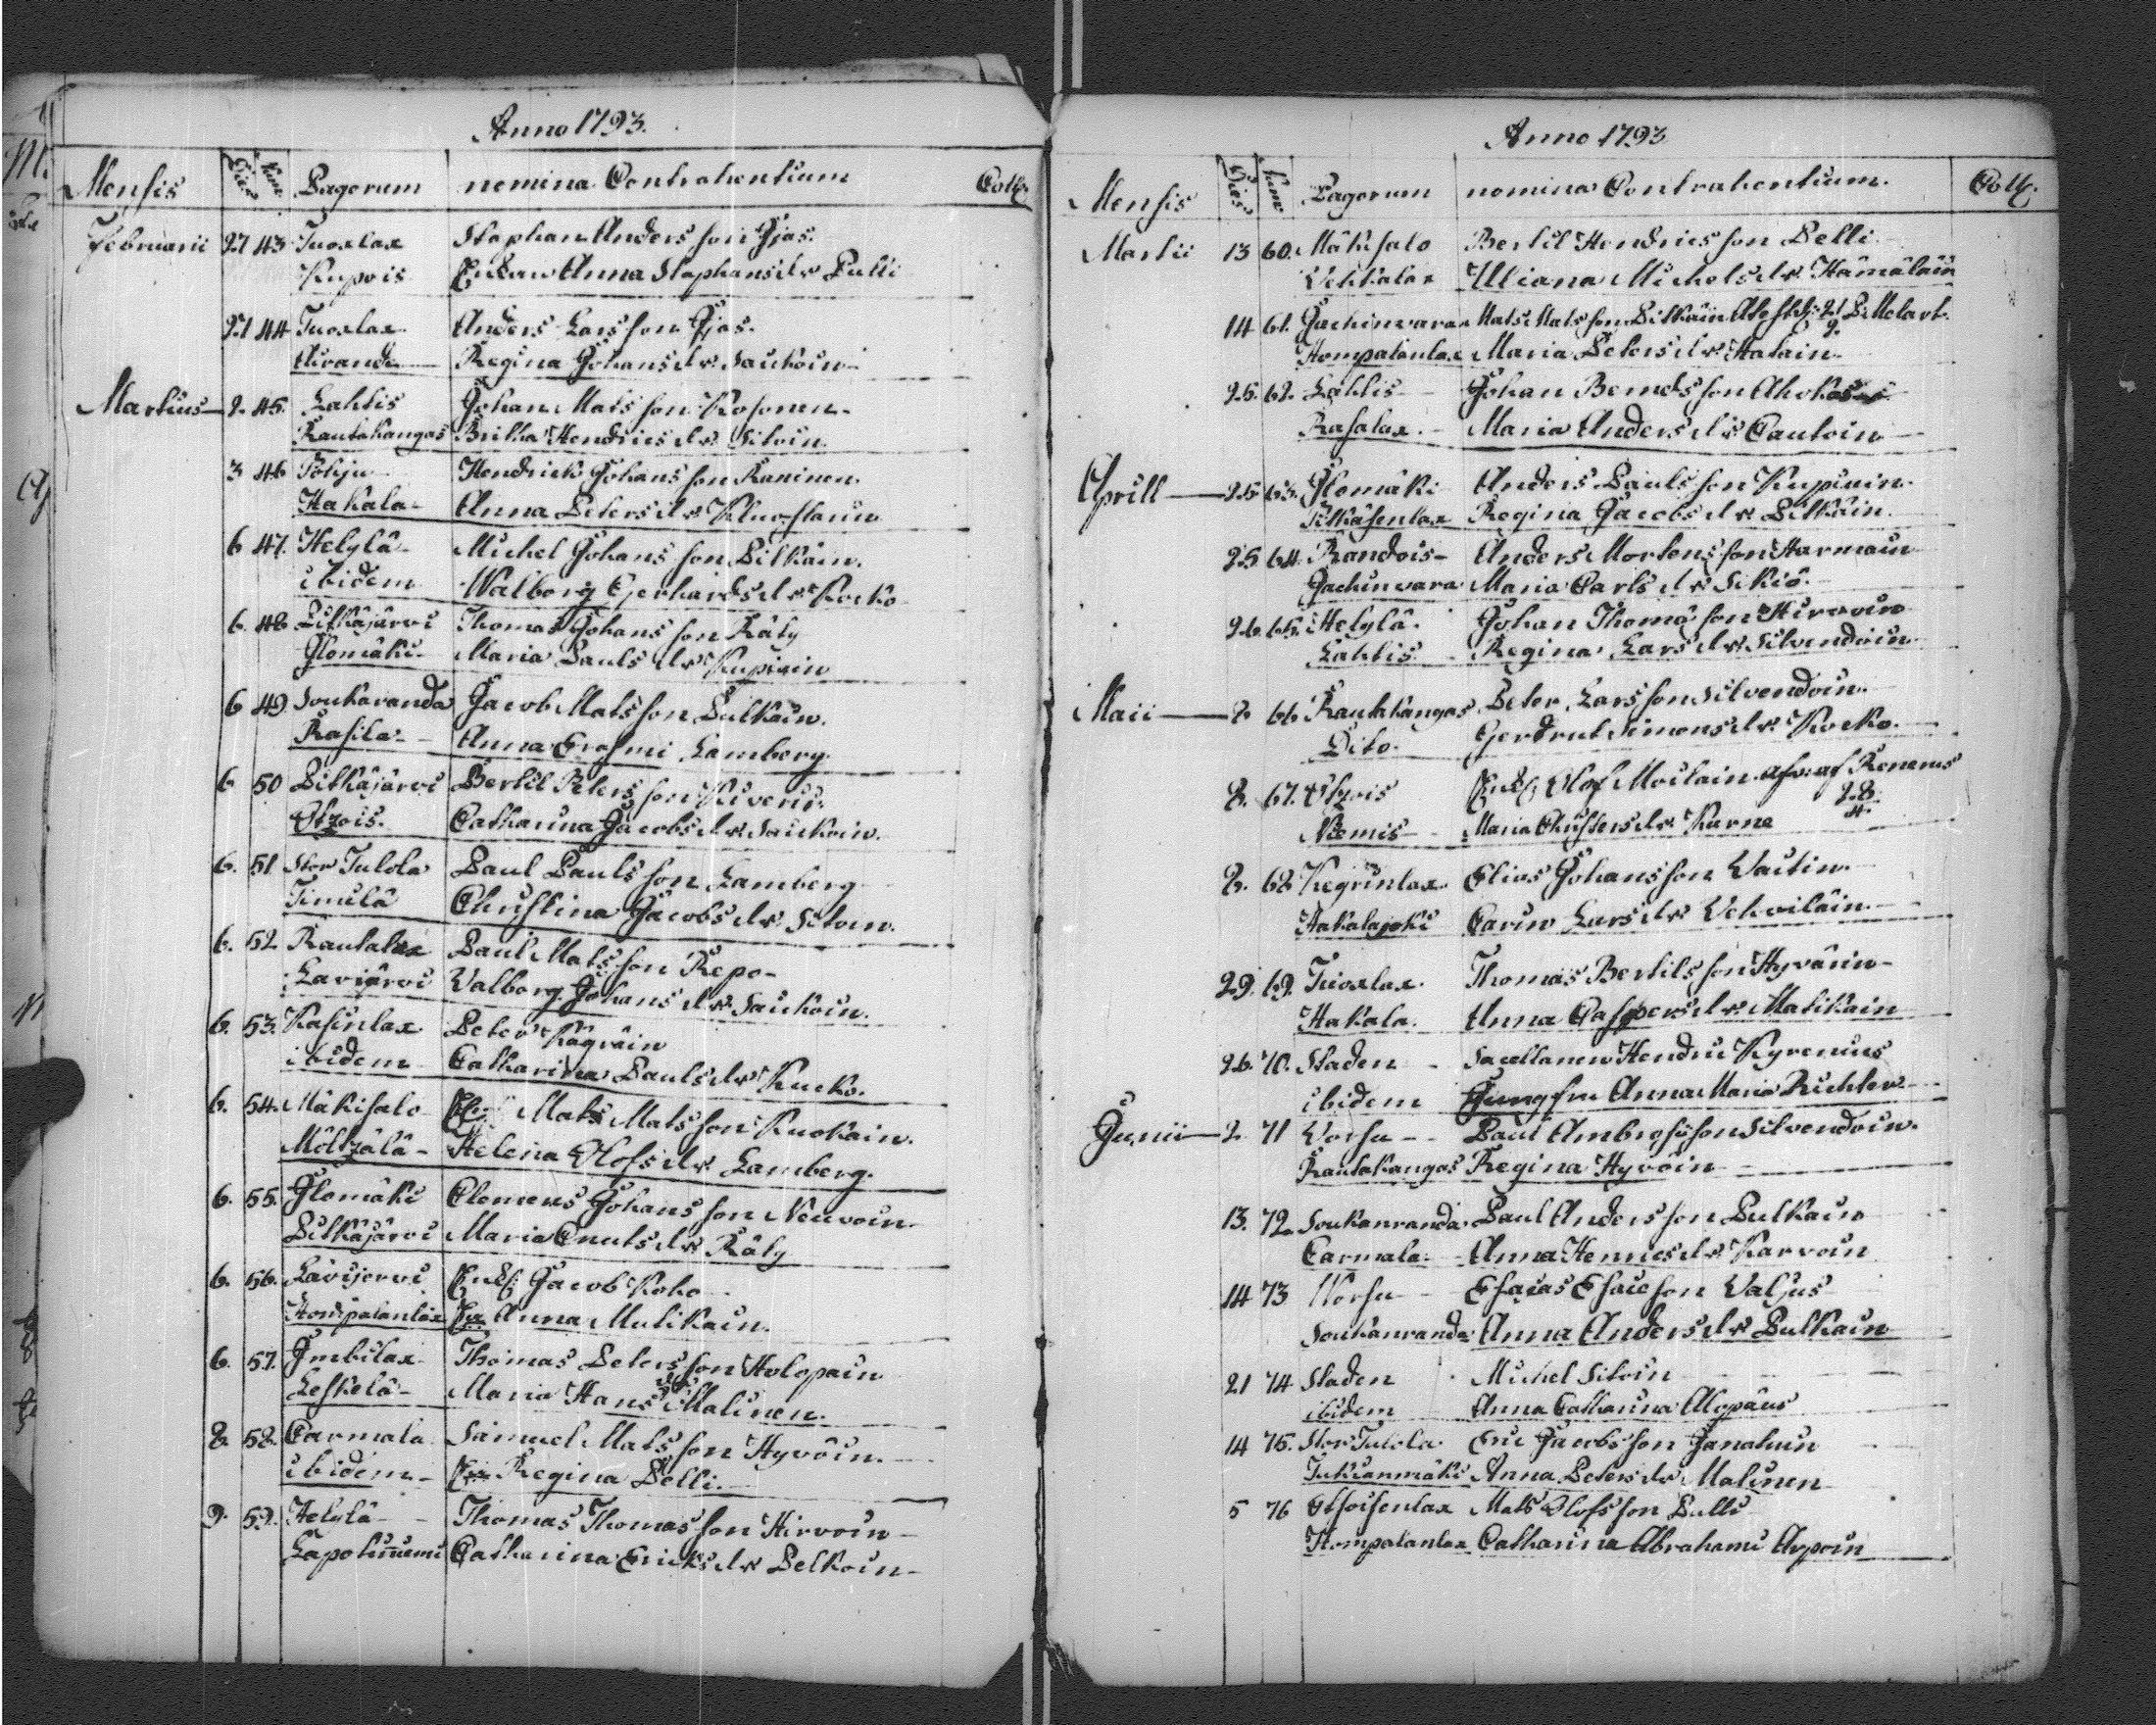 Anno 1793.
Mensis Dies Num Pagorum nomina Contrahentium Coll.
Februarii 27 43 Tuoxlax Staphan Anders son Ijas.
Kupois Enkan Anna Staphans dr Pulli
27 44 Tuoxlax Anders Lars son Ijas.
Regina Johans dr Saukoin
Martius 2 45. Lahtis Johan Mats son Kosonen.
Rautakangas Britha Hendrics dr Sitoin.
3 46 Pohju Hendrick Johans son Raninen.
Hakala Anna Peters dr
6 47. Helylä Michel Johans son Pitkäin.
ibidem Walborg Gerhards dr Kocko
6. 48 Pitkäjärvi Thomas Johans son Räty
Ilomäki Maria Pauls dr Kupiain
6 49. Soukaranda Jacob Mats son Pulkain.
Rasila Anna Erasmi Lamberg.
6 50 Pitkäjärvi Bertil Peters son Kiverii.
Otzois. Catharina Jacobs dr Sauckoin.
6. 51 Stor Tulola Paul Pauls son Lamberg
Timilä Christina Jacobs dr Sitoin.
6. 52 Rautalax Paul Mats son Repo
Lavijärvi Valborg Johans dr Sauckoin.
6. 53. Kasinlax Peter Kägräin
ibidem Catharina Pauls dr Kucko.
6. 54. Mäkisalo Mats Mats son Kuokain.
Möltzälä Helena Olofs dr Lamberg.
6. 55. Ilomäki Clemens Johans son Neuvoin.
Pitkäjärvi Maria Cnuts dr Räty
6. 56. Lävijervi Enkl. Jacob Koho
Hombalanlax Anna Mulikain.
6. 57. Imbilax Thomas Peters son Holopain
Leskelä Maria Hans dr Malinen.
8. 58. Carmala Samuel Mats son Hyvöin.
ibidem Regina Pelli.
9. 59. Helylä Thomas Thomas son Hirvoin
Lapokiniemi Catharina Ericks dr Pelkoin
Anno 1793
Mensis Dies Num Pagorum nomina Contrahentium. Coll.
Martii 13 60. Mäkisalo Bertil Hendrics son Pelli
Vehkalax Uliana Michels dr Hämäläin
14 61. Jachinvaara Mats Mats son Pitkäin
Hompalanlax Maria Peters dr Hatain
25. 62. Lahtis Johan Bernds son
Rasalax. Maria Anders dr Cautoin
Aprill 25 63. Ilomäki Anders Pauls son Kupiain
Kitkäsenlax Regina Jacobs dr Pitkäin.
25. 64. Randois Anders Mortens son Harmain
Jachinvara Maria Carls dr Sikiö.
26. 65. Helylä. Johan Thomä son Hirvoin
Lahtis Regina Lars dr Silvendoin
Maii 8 66 Rautakangas Peter Lars son Silvendoin.
Dito. Gerdrut Simons dr Kocko.
8. 67. Otzois Enkl. Olof Moilain
Niemis Maria Christers dr Kurne
8. 68 Kegrinlax Elias Johans son Vaitin
Hakalajoki Carin Lars dr Vehviläin
29. 69. Tuoxlax. Thomas Bertils son Hyvärin
Hakala. Anna Caspers dr Matikain
26. 70. Staden Sacellanen Hendric Kyrenius
ibidem Jungfru Anna Maria Richter
Junii 2 71 Vorsu Paul Ambrosii son Silvendoin.
Rautakangas Regina Hyvöin
13. 72 Soukanranda Paul Anders son Pulkain
Carmala. Anna Henrics dr Karvoin
14 73 Worsu Esaias Esaie son Valjus
Soukanranda Anna Anders dr Pulkain
21 74 Staden Michel Sitoin
ibidem Anna Catharina Alopäus
14 75. Stor Tulola Eric Jacobs son Janatuin
Tukianmäki Anna Peters dr Malinen
5 76 Otsoisenlax Mats Olofs son Pulli
Hompalanlax Catharina Abrahami Arpoin